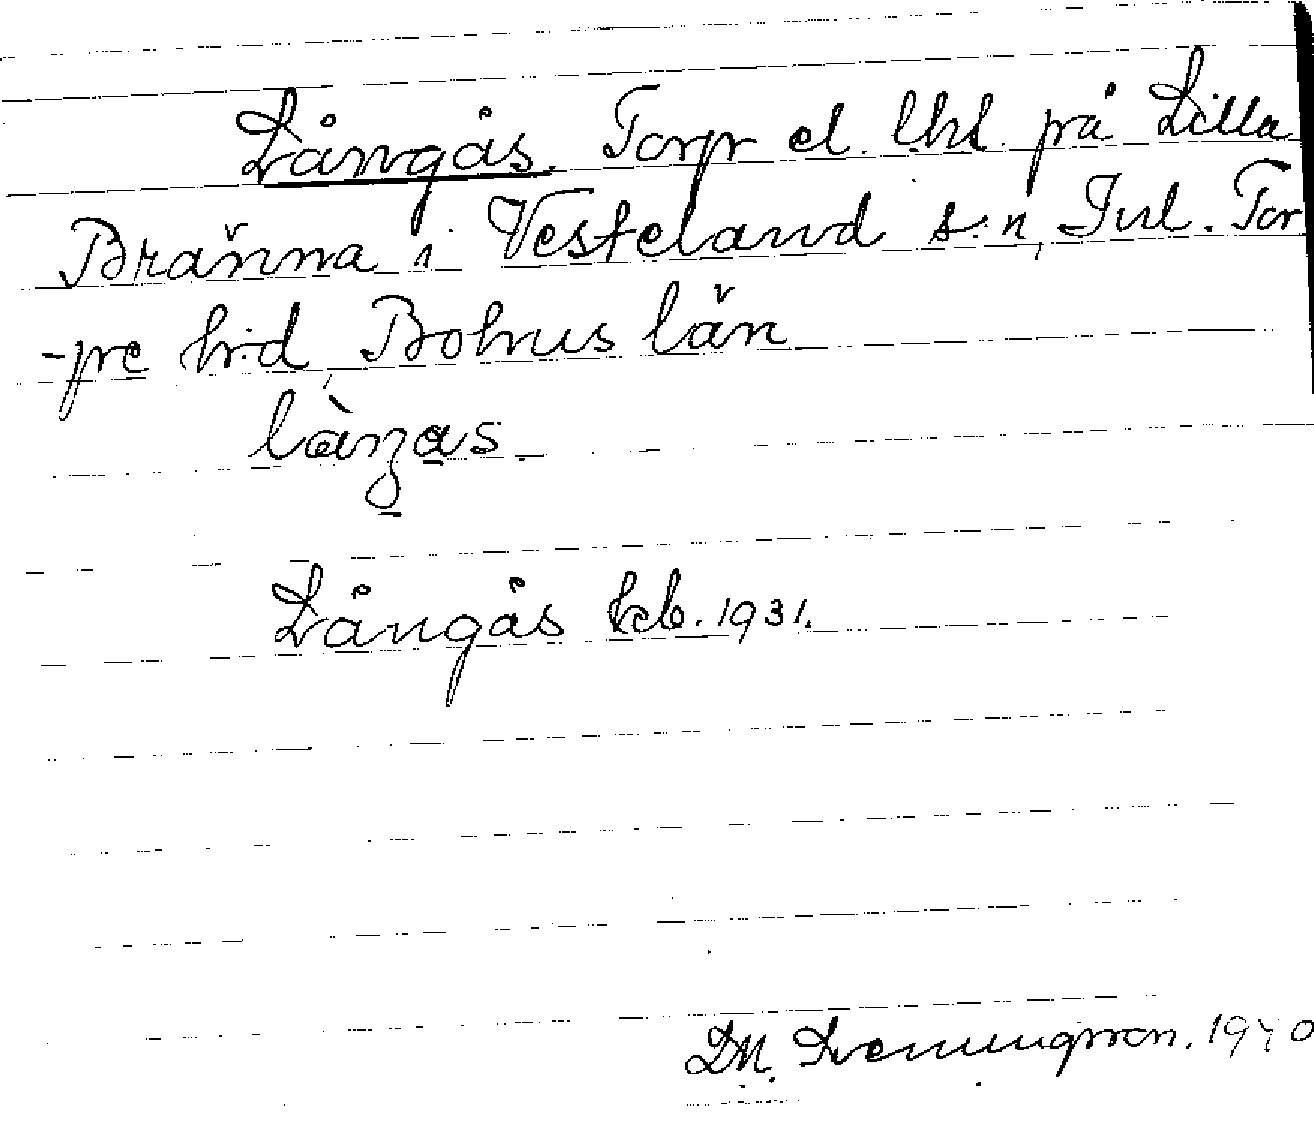 Långås. Torp el. lht på Lilla
Bränna i Vesteland s:n, Inl. Tor
-pe h:d Bohus län
làŋas
Långås kcb. 1931.
DM. 1940